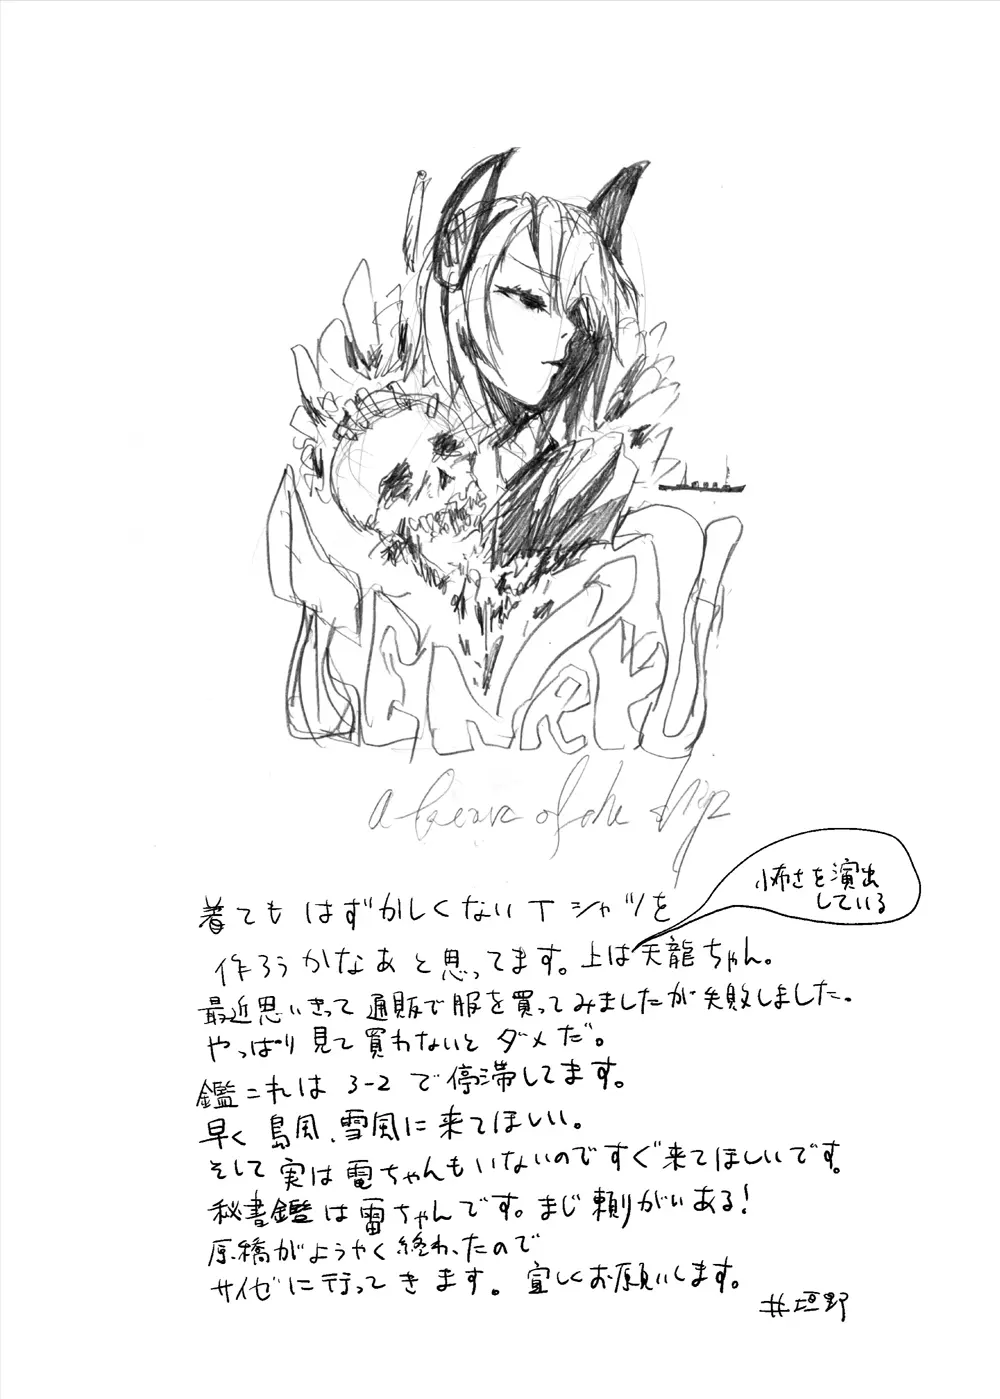 TENRYU
a     of the
怖さを演出
している
着てもはずかしくないTシャツを
作ろうかなあと思ってます。上は天龍ちゃん。
最近思いきって通販で服を買ってみましたが失敗しました。
やっぱり見て買わないとダメだ。
鑑これは3-2で停滞してます。
早く島風、雪風に来てほしい。
そして実は電ちゃんもいないのですぐ来てほしいです。
秘書鑑は雷ちゃんです。まじ頼りがいある!
原橋がようやく終わったので
サイゼに行ってきます。宜しくお願いします。
井垣野